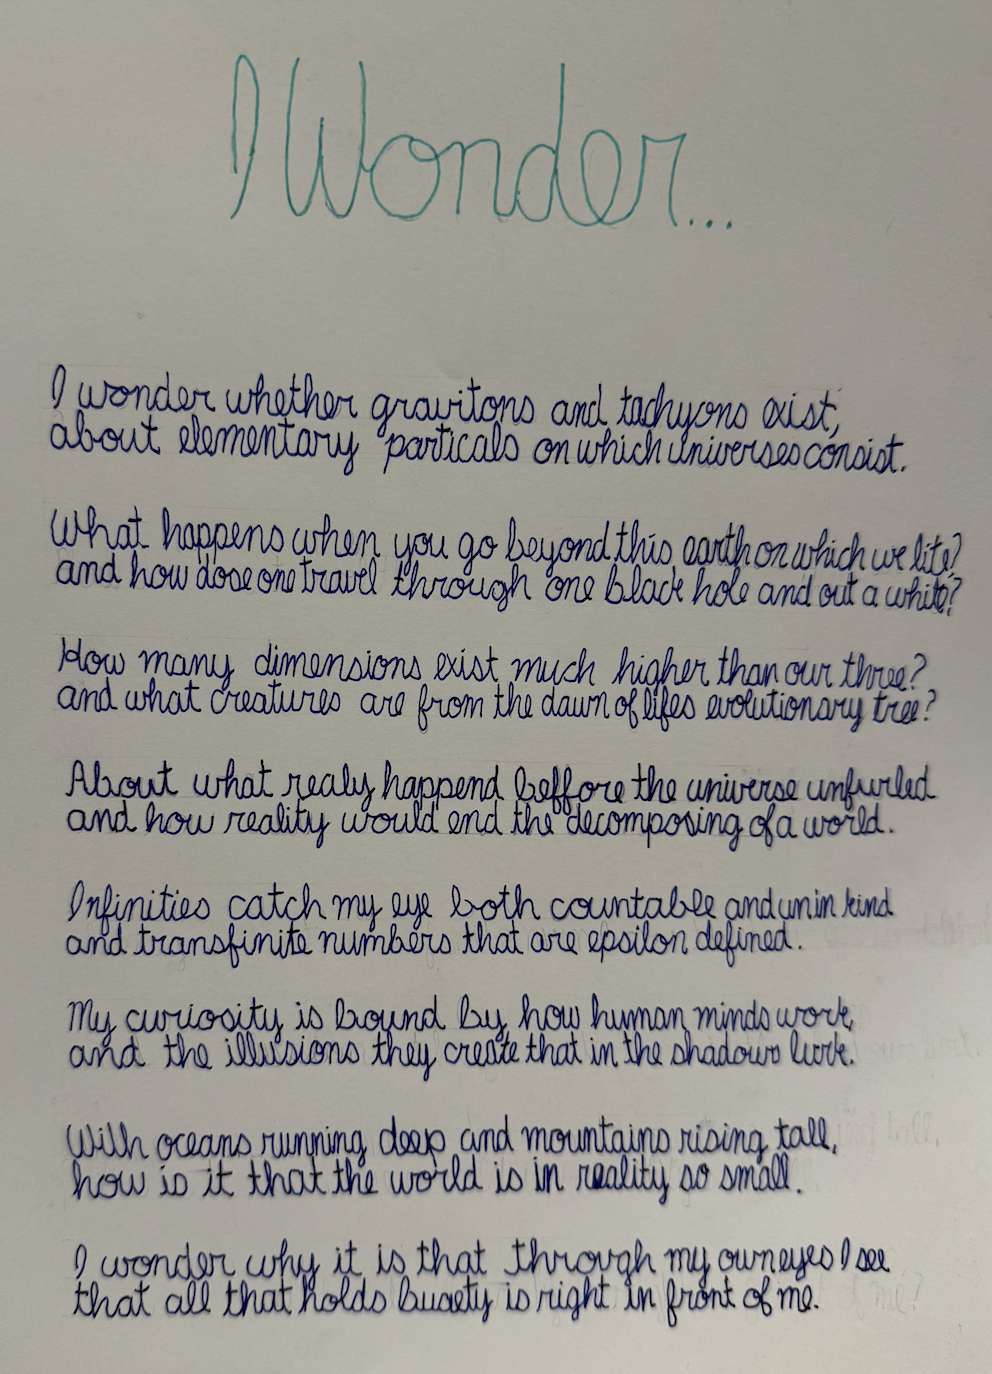 I Wonder...
I wonder whether gravitons and tachyons exist,
about elementary particals on which universes consist.
What happens when you go beyond this earth on which we lite?
and how dose one travel through one black hole and out a white?
How many dimensions exist much higher than our three?
and what creatures are from the dawn of lifes evolutionary tree?
About what realy happend beffore the universe unfurled
and how reality would end the decomposing of a world.
Infinities catch my eye both countable and un in kind
and transfinite numbers that are epsilon defined.
My curiosity is bound by how human minds work,
and the illusions they create that in the shadows lurk.
With oceans running deep and mountains rising tall,
how is it that the world is in reality so small.
I wonder why it is that through my own eyes I see
that all that holds buaety is right in front of me.